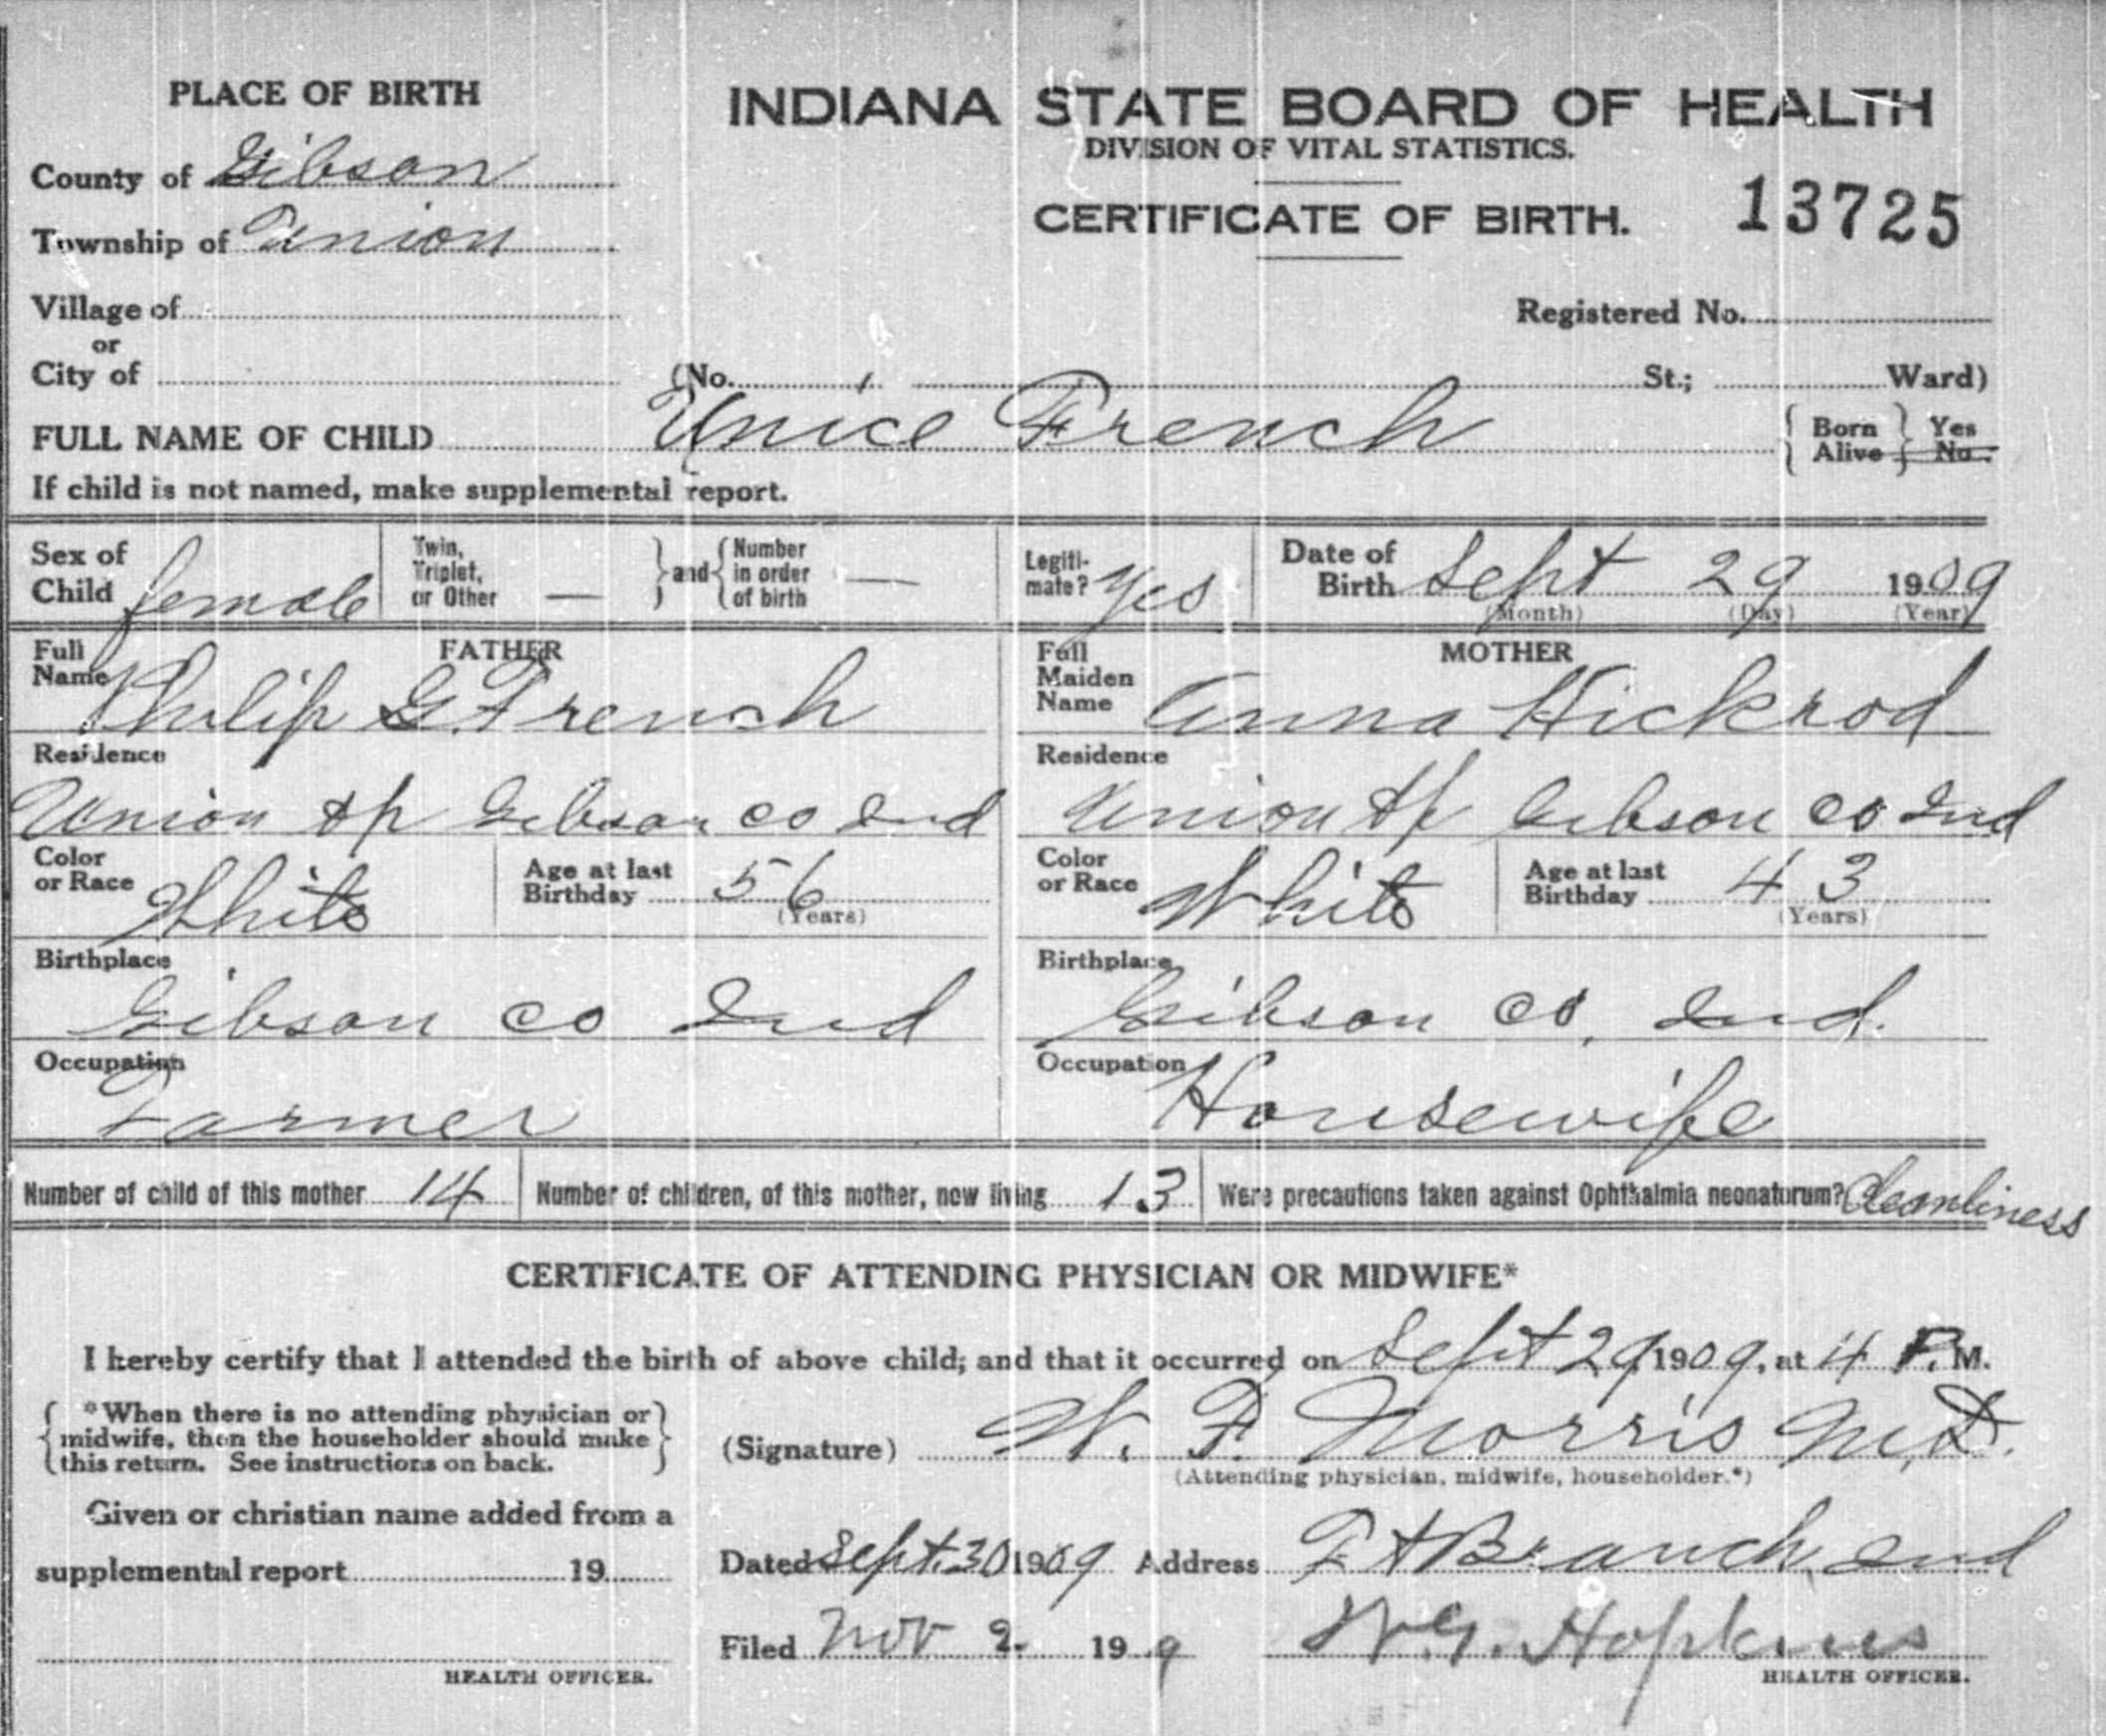 PLACE OF BIRTH
INDIANA STATE BOARD OF HEALTH
DIVISION OF VITAL STATISTICS.
County of Gibson
CERTIFICATE OF BIRTH. 13725
Township of Union
Village of
Registered No.
or
City of (No. St.; Ward)
FULL NAME OF CHILD Unice French { Born Alive } Yes No.
If child is not named, make supplemental report.
Sex of Child female Twin, Triplet, or Other — } and { Number in order of birth — Legiti-mate? Yes Date of Birth Sept 29 1909
(Month) (Day) (Year)
FATHER MOTHER
Full Name Philip G. French Full Maiden Name Anna Hickrod
Residence Residence
Union tp Gibson co Ind Union tp Gibson co Ind
Color or Race White Age at last Birthday 56 (Years) Color or Race White Age at last Birthday 43 (Years)
Birthplace Birthplace
Gibson co Ind Gibson co, Ind.
Occupation Occupation
Farmer Housewife
Number of child of this mother 14 Number of children, of this mother, now living 13 Were precautions taken against Ophthalmia neonatorum? Cleanliness
CERTIFICATE OF ATTENDING PHYSICIAN OR MIDWIFE*
I hereby certify that I attended the birth of above child; and that it occurred on Sept 29 1909, at 4 P. M.
{ *When there is no attending physician or midwife, then the householder should make this return. See instructions on back. }
(Signature) W. F. Morris M.D.
(Attending physician, midwife, householder.*)
Given or christian name added from a
supplemental report 19
Dated Sept. 30 1909 Address Ft Branch, Ind
Filed Nov 2. 19 9 W.G. Hopkins
HEALTH OFFICER. HEALTH OFFICER.